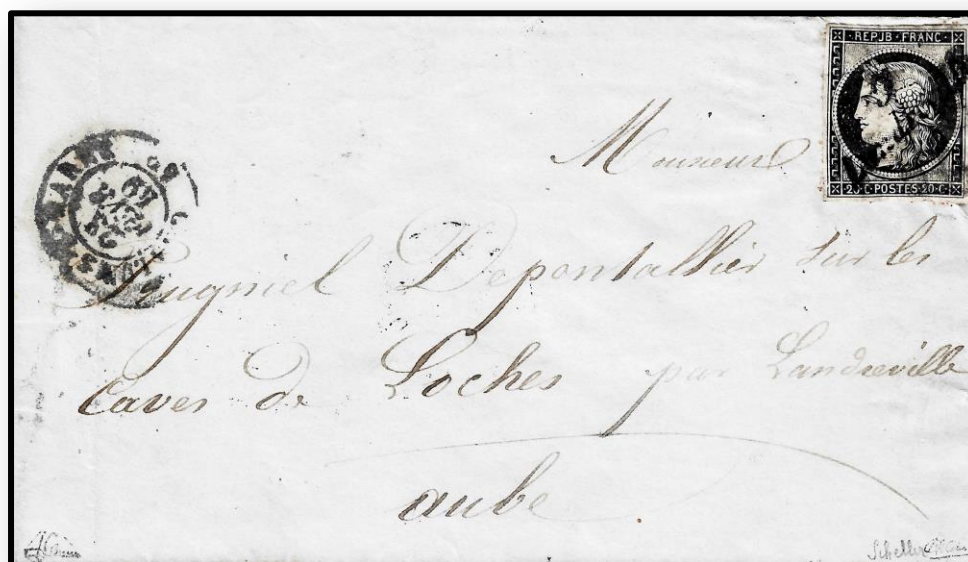 REPUB·FRANC·
20·C·POSTES·20·C
Monsieur
Depontallier sur les
Caves de Loches par Landreville
aube
Scheller